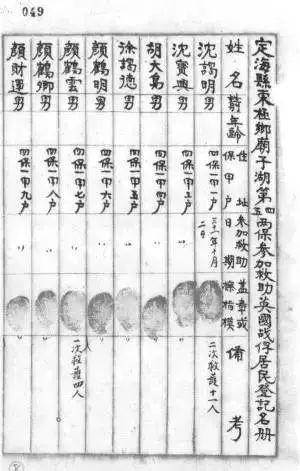 049
定海縣東極鄉廟子湖第四五兩保參加救助英國战俘居民登記名册
姓名 龄 年龄 住址 保甲户 參加救助日期 盖章或捺指模 備考
沈阿明 男 四保一甲一户 三十一年十月二日 二次救護十一人
沈寶興 男 四保一甲三户 〃 〃
胡大高 男 四保一甲四户 〃 〃
徐阿德 男 四保一甲五户 〃 〃
顏鶴明 男 四保一甲六户 〃 〃
顏鶴雲 男 四保一甲七户 〃 〃 一次救護四人
顏鶴卿 男 四保一甲八户 〃 〃
顏財運 男 四保一甲九户 〃 〃